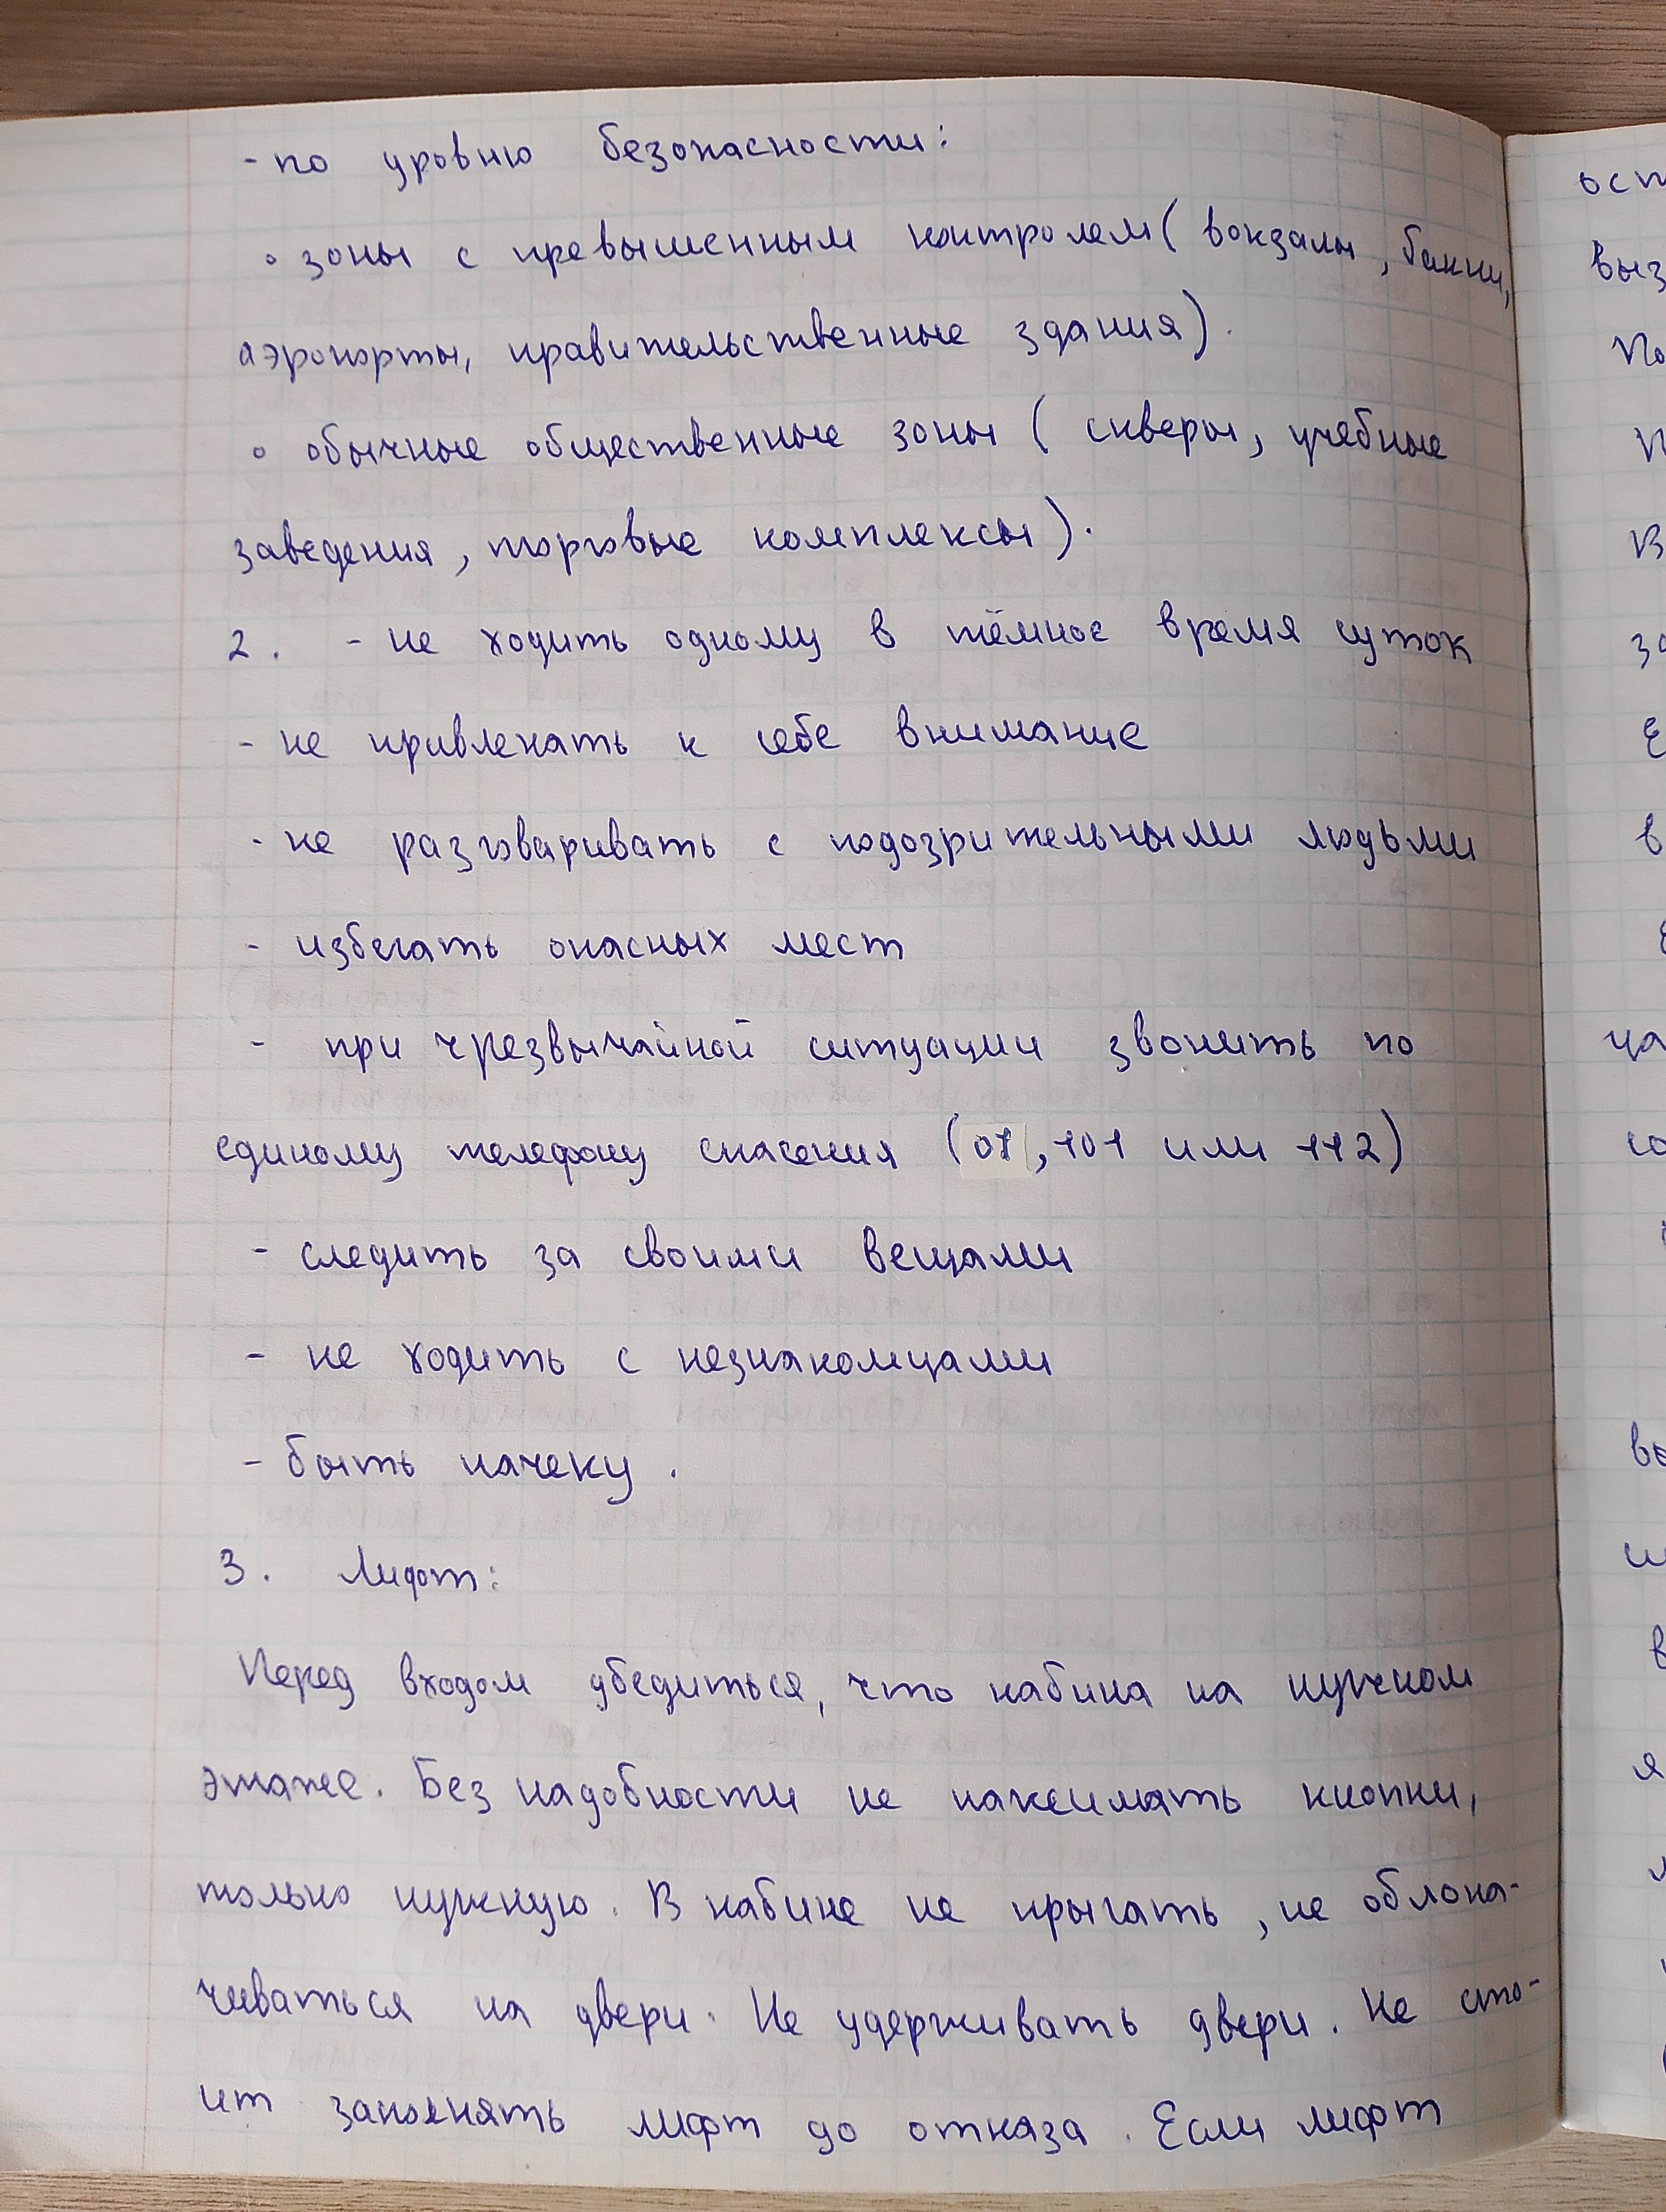 - по уровню безопасности:
◦ зоны с превышенным контролем (вокзалы, банки,
аэропорты, правительственные здания).
◦ обычные общественные зоны (скверы, учебные
заведения, торговые комплексы).
2. - не ходить одному в тёмное время суток
- не привлекать к себе внимание
- не разговаривать с подозрительными людьми
- избегать опасных мест
- при чрезвычайной ситуации звонить по
единому телефону спасения (01, 101 или 112)
- следить за своими вещами
- не ходить с незнакомцами
- быть начеку.
3. Лифт:
Перед входом убедиться, что кабина на нужном
этаже. Без надобности не нажимать кнопки,
только нужную. В кабине не прыгать, не облока-
чиваться на двери. Не удерживать двери. Не сто-
ит заполнять лифт до отказа. Если лифт